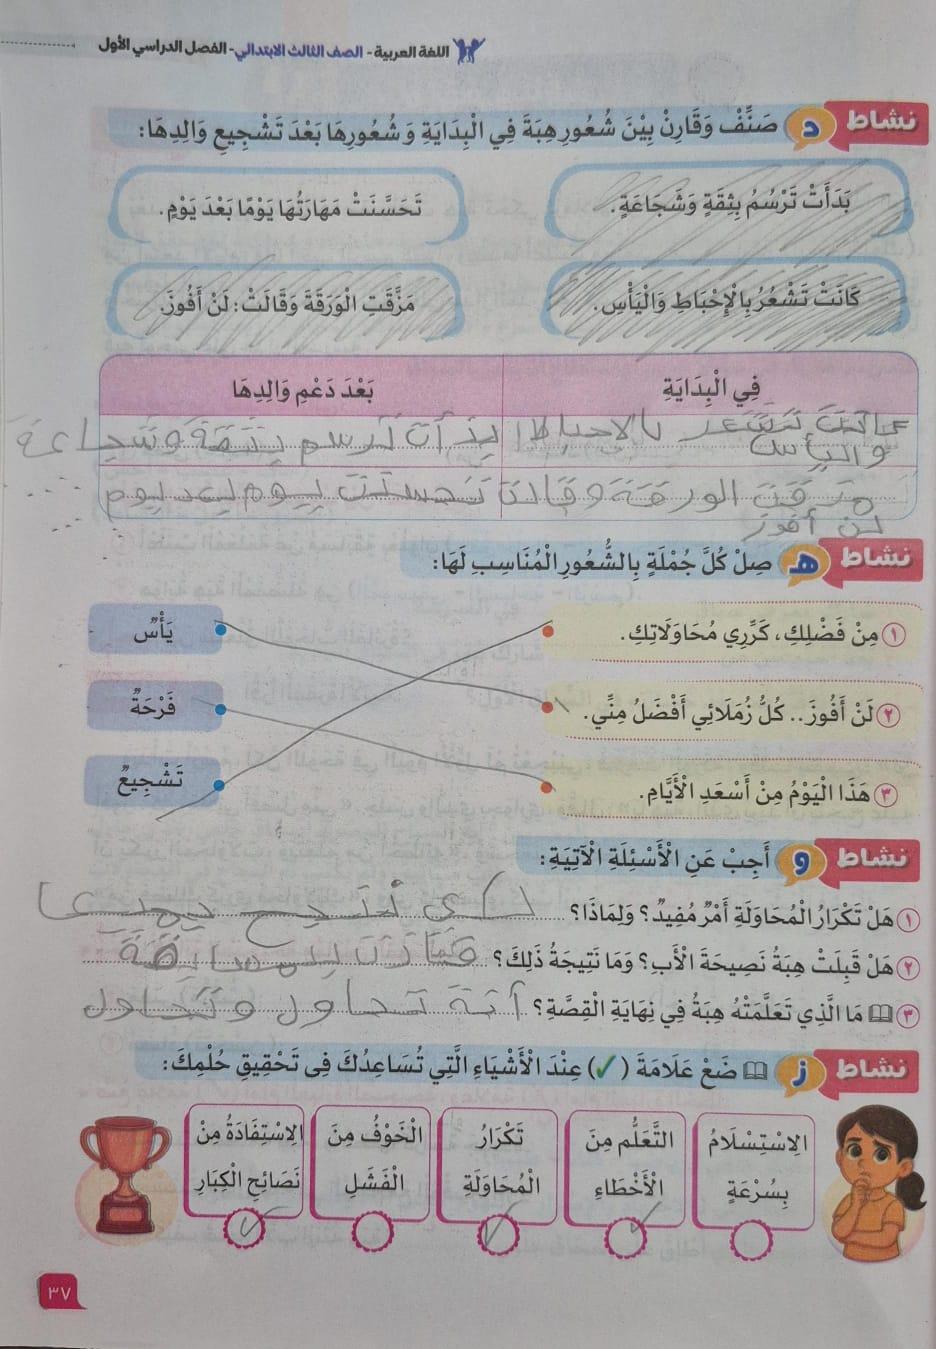 اللغة العربية - الصف الثالث الابتدائي - الفصل الدراسي الأول
نشاط د صَنِّفْ وَقَارِنْ بَيْنَ شُعُورِ هِبَةَ فِي الْبِدَايَةِ وَشُعُورِهَا بَعْدَ تَشْجِيعِ وَالِدِهَا:
بَدَأَتْ تَرْسُمُ بِثِقَةٍ وَشَجَاعَةٍ. تَحَسَّنَتْ مَهَارَتُهَا يَوْمًا بَعْدَ يَوْمٍ.
كَانَتْ تَشْعُرُ بِالْإِحْبَاطِ وَالْيَأْسِ. مَزَّقَتِ الْوَرَقَةَ وَقَالَتْ: لَنْ أَفُوزَ.
فِي الْبِدَايَةِ بَعْدَ دَعْمِ وَالِدِهَا
كانت تشعر بالاحباط بدأت ترسم بثقة وشجاعة
واليأس
مزقت الورقة وقالت تحسنت
لن أفوز
نشاط هـ صِلْ كُلَّ جُمْلَةٍ بِالشُّعُورِ الْمُنَاسِبِ لَهَا:
١ مِنْ فَضْلِكِ، كَرِّرِي مُحَاوَلَاتِكِ. يَأْسٌ
٢ لَنْ أَفُوزَ.. كُلُّ زُمَلَائِي أَفْضَلُ مِنِّي. فَرْحَةٌ
٣ هَذَا الْيَوْمُ مِنْ أَسْعَدِ الْأَيَّامِ. تَشْجِيعٌ
نشاط و أَجِبْ عَنِ الْأَسْئِلَةِ الْآتِيَةِ:
١ هَلْ تَكْرَارُ الْمُحَاوَلَةِ أَمْرٌ مُفِيدٌ؟ وَلِمَاذَا؟ لكي
٢ هَلْ قَبِلَتْ هِبَةُ نَصِيحَةَ الْأَبِ؟ وَمَا نَتِيجَةُ ذَلِكَ؟
٣ مَا الَّذِي تَعَلَّمَتْهُ هِبَةُ فِي نِهَايَةِ الْقِصَّةِ؟ تحاول وتحاول
نشاط ز ضَعْ عَلَامَةَ (✓) عِنْدَ الْأَشْيَاءِ الَّتِي تُسَاعِدُكَ فِى تَحْقِيقِ حُلْمِكَ:
الِاسْتِسْلَامُ بِسُرْعَةٍ
التَّعَلُّم مِنَ الْأَخْطَاءِ
تَكْرَارُ الْمُحَاوَلَةِ
الْخَوْفُ مِنَ الْفَشَلِ
الِاسْتِفَادَةُ مِنْ نَصَائِحِ الْكِبَارِ
٣٧